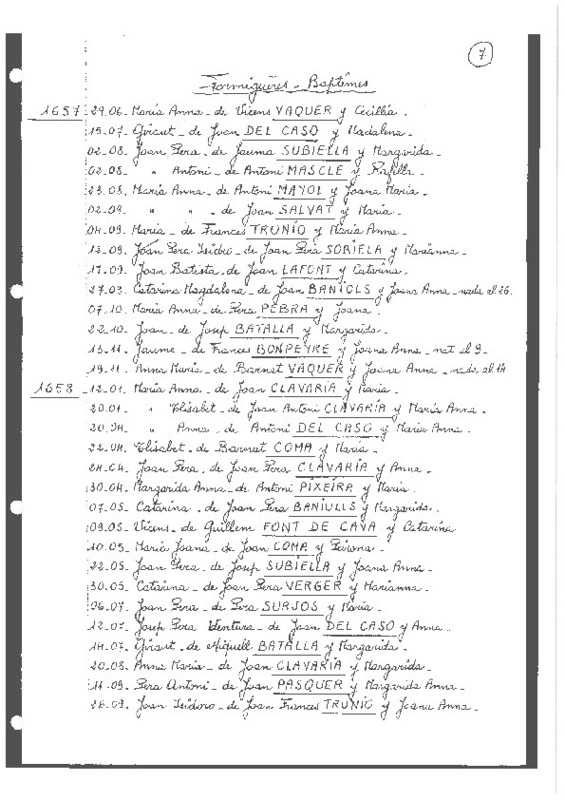 7
Formiguères - Baptêmes
1657 29.06 - Maria Anna - de Vicens VAQUER y Cecillia -
15.07. Giraut - de Joan DEL CASO y Madalena -
02.08 - Joan Pera - de Jauma SUBIELLA y Margarida -
02.08 - " Antoni - de Antoni MASCLE y Rafella -
23.08. Maria Anna - de Antoni MAYOL y Joana Maria -
02.09 - " " - de Joan SALVAT y Maria -
04.09 - Maria - de Frances TRUNIO y Maria Anna -
12.09. Joan Pera Isidro - de Joan Pera SOBIELA y Marianna -
17.09. Joan Batista - de Joan LAFONT y Catarina -
27.09. Catarina Magdalena - de Joan BANIOLS y Joana Anna - nada al 26.
07.10. Maria Anna - de Pera PEBRA y Joana -
22.10. Joan - de Josep BATALLA y Margarida -
13.11. Jaume - de Frances BONPEYRE y Joana Anna - nat el 9 -
19.11. Anna Maria - de Barnat VAQUER y Joana Anna - nada, al 14
1658 - 12.01. Maria Anna - de Joan CLAVARIA y Maria -
20.01 - " Elisabet - de Joan Antoni CLAVARIA y Maria Anna -
20.04. " Anna - de Antoni DEL CASO y Maria Anna -
22.04. Elisabet - de Barnat COMA y Maria -
24.04. Joan Pera - de Joan Pera CLAVARIA y Anna -
30.04. Margarida Anna - de Antoni PIXEIRA y Maria -
07.05. Catarina - de Joan Pera BANIULLS y Margarida -
09.05 - Vicens - de Guillem FONT DE CAVA y Catarina
10.05 - Maria Joana - de Joan COMA y
22.05. Joan Pera - de Josep SUBIELLA y Joana Anna -
30.05 - Catarina - de Joan Pera VERGER y Marianna -
06.07. Joan Pera - de Pera SURJOS y Maria -
12.07. Josep Pera Ventura - de Joan DEL CASO y Anna -
14.07. Girart - de Miquell BATALLA y Margarida -
20.08. Anna Maria - de Joan CLAVARIA y Margarida -
14.09. Pera Antoni - de Joan PASQUER y Margarida Anna -
26.09. Joan Isidoro - de Joan Frances TRUNIO y Joana Anna -